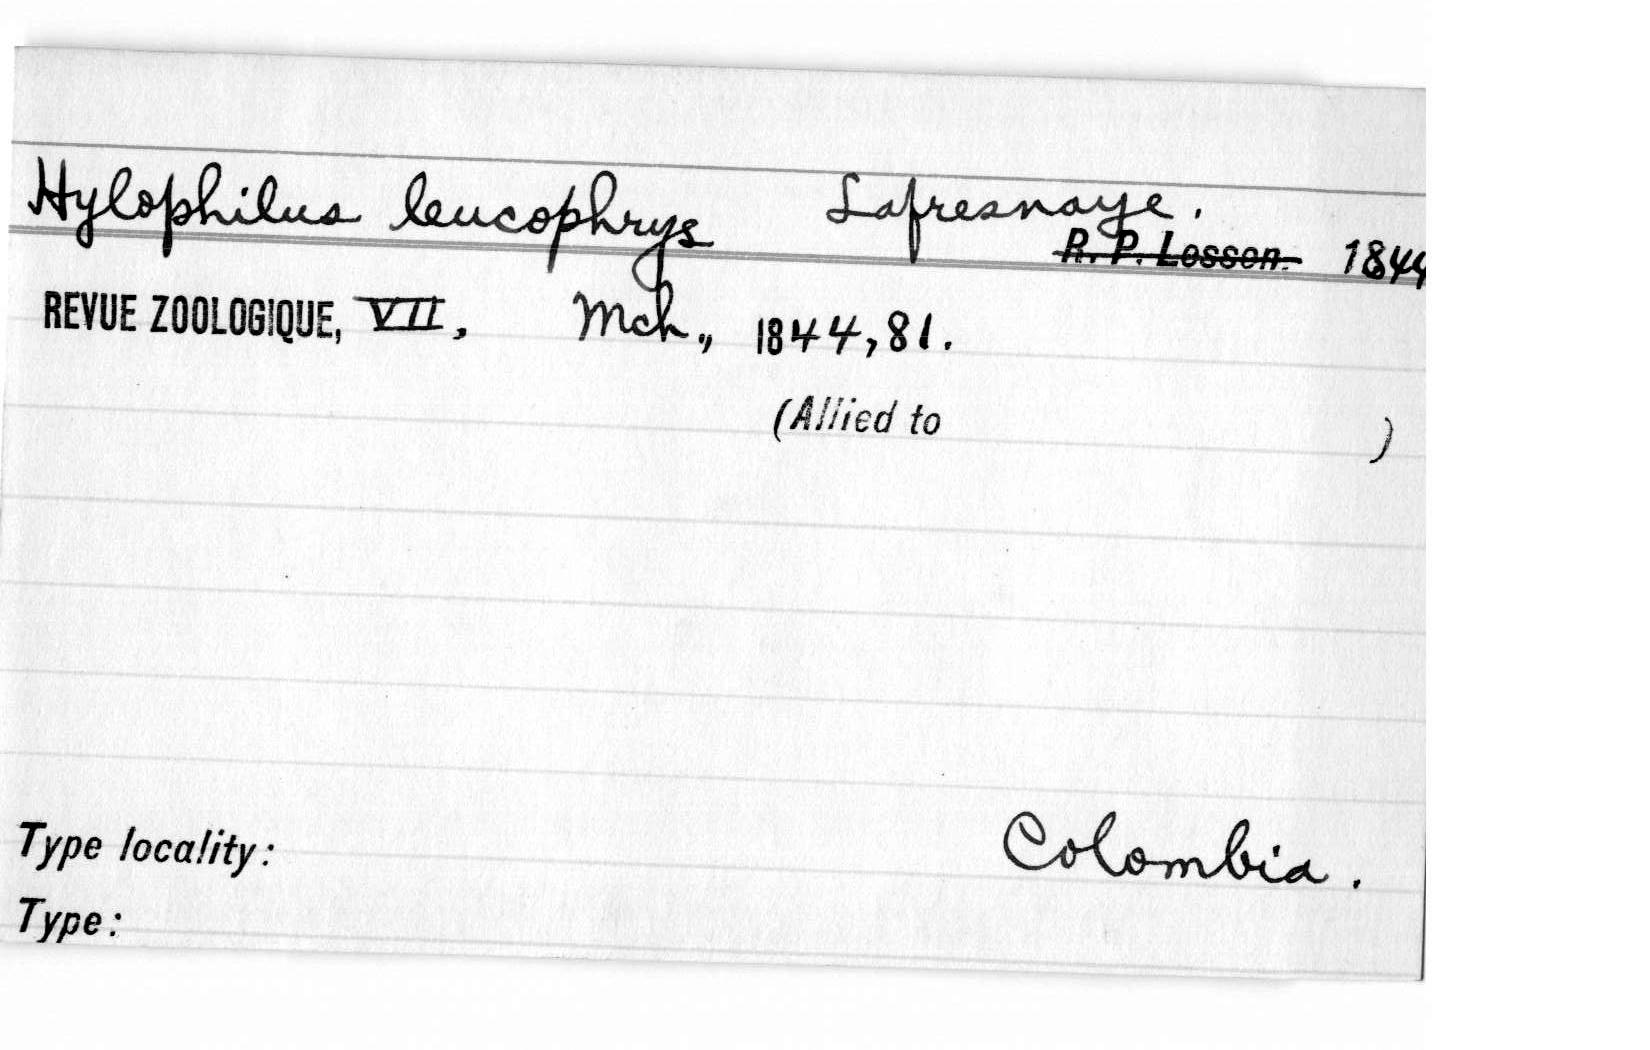 Hylophilus leucophrys Lafresnaye.
R. P. Lesson. 1844
REVUE ZOOLOGIQUE, VII, Mch., 1844, 81.
(Allied to )
Type locality: Colombia.
Type: